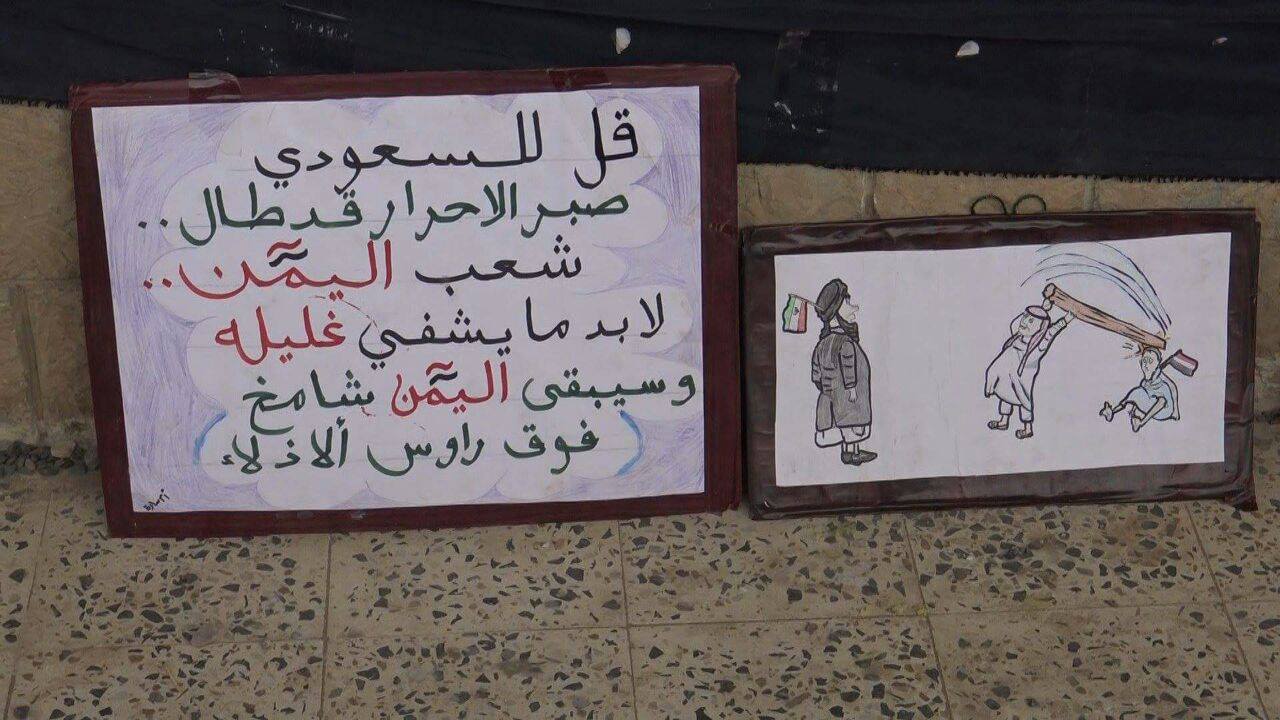 قل للسعودي
صبر الاحرار قد طال..
شعب اليمن..
لابد ما يشفي غليله
وسيبقى اليمن شامخ
(فوق راوس ألاذلاء)